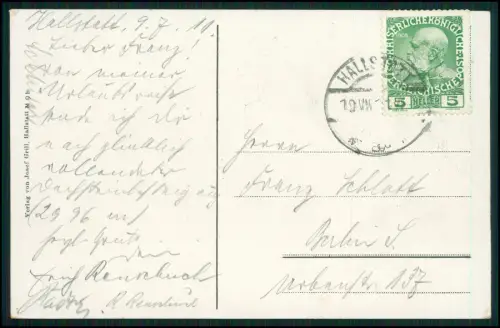 Hallstatt, 9.7.11.
Lieber Franz!
Von meiner
Urlaubs
sende ich dir
nach glücklich
vollendeter
Dachsteinbesteigung
(2996 m)
herzl. Gruß
dein
Erich Rensch
R. Rensch
Verlag von Josef Grill, Hallstatt
KAISERLICHE KÖNIGLICHE ÖSTERREICHISCHE POST
5 HELLER 5
HALLSTATT
9 VII
Herrn
Franz Schlott
Berlin S.
Urbanstr. 137